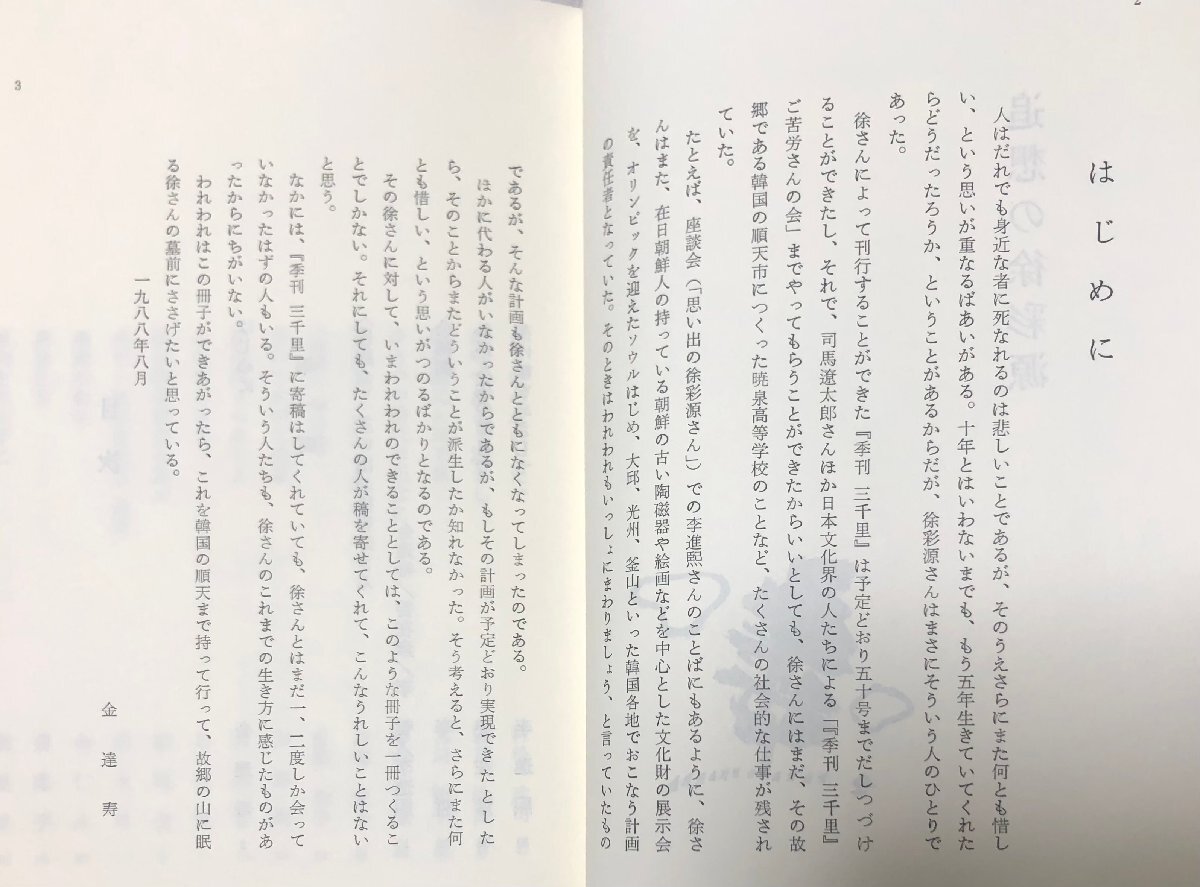 2
はじめに
人はだれでも身近な者に死なれるのは悲しいことであるが、そのうえさらにまた何とも惜し
い、という思いが重なるばあいがある。十年とはいわないまでも、もう五年生きていてくれた
らどうだったろうか、ということがあるからだが、徐彩源さんはまさにそういう人のひとりで
あった。
徐さんによって刊行することができた『季刊 三千里』は予定どおり五十号までだしつづけ
ることができたし、それで、司馬遼太郎さんほか日本文化界の人たちによる「『季刊 三千里』
ご苦労さんの会」までやってもらうことができたからいいとしても、徐さんにはまだ、その故
郷である韓国の順天市につくった暁泉高等学校のことなど、たくさんの社会的な仕事が残され
ていた。
たとえば、座談会(「思い出の徐彩源さん」)での李進熙さんのことばにもあるように、徐さ
んはまた、在日朝鮮人の持っている朝鮮の古い陶磁器や絵画などを中心とした文化財の展示会
を、オリンピックを迎えたソウルはじめ、大邱、光州、釜山といった韓国各地でおこなう計画
の責任者となっていた。そのときはわれわれもいっしょにまわりましょう、と言っていたもの
であるが、そんな計画も徐さんとともになくなってしまったのである。
ほかに代わる人がいなかったからであるが、もしその計画が予定どおり実現できたとした
ら、そのことからまたどういうことが派生したか知れなかった。そう考えると、さらにまた何
とも惜しい、という思いがつのるばかりとなるのである。
その徐さんに対して、いまわれわれのできることとしては、このような冊子を一冊つくるこ
とでしかない。それにしても、たくさんの人が稿を寄せてくれて、こんなうれしいことはない
と思う。
なかには、『季刊 三千里』に寄稿はしてくれていても、徐さんとはまだ一、二度しか会って
いなかったはずの人もいる。そういう人たちも、徐さんのこれまでの生き方に感じたものがあ
ったからにちがいない。
われわれはこの冊子ができあがったら、これを韓国の順天まで持って行って、故郷の山に眠
る徐さんの墓前にささげたいと思っている。
一九八八年八月
金達寿
3